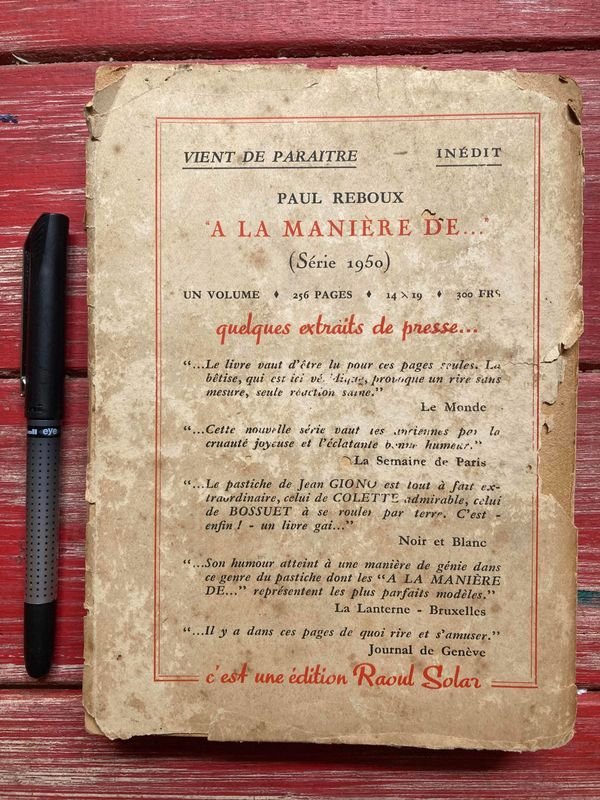 VIENT DE PARAITRE INÉDIT
PAUL REBOUX
"A LA MANIÈRE DE..."
(Série 1950)
UN VOLUME ♦ 256 PAGES ♦ 14 x 19 ♦ 300 FRS
quelques extraits de presse...
“...Le livre vaut d'être lu pour ces pages seules. La
bêtise, qui est ici provoque un rire sans
mesure, seule réaction saine.”
Le Monde
“...Cette nouvelle série vaut les anciennes par la
cruauté joyeuse et l'éclatante bonne humeur.”
La Semaine de Paris
“...Le pastiche de Jean GIONO est tout à fait ex-
traordinaire, celui de COLETTE admirable, celui
de BOSSUET à se rouler par terre. C'est -
enfin ! - un livre gai...”
Noir et Blanc
“...Son humour atteint à une manière de génie dans
ce genre du pastiche dont les “A LA MANIÈRE
DE...” représentent les plus parfaits modèles.”
La Lanterne - Bruxelles
“...Il y a dans ces pages de quoi rire et s'amuser.”
Journal de Genève
c'est une édition Raoul Solar
eye